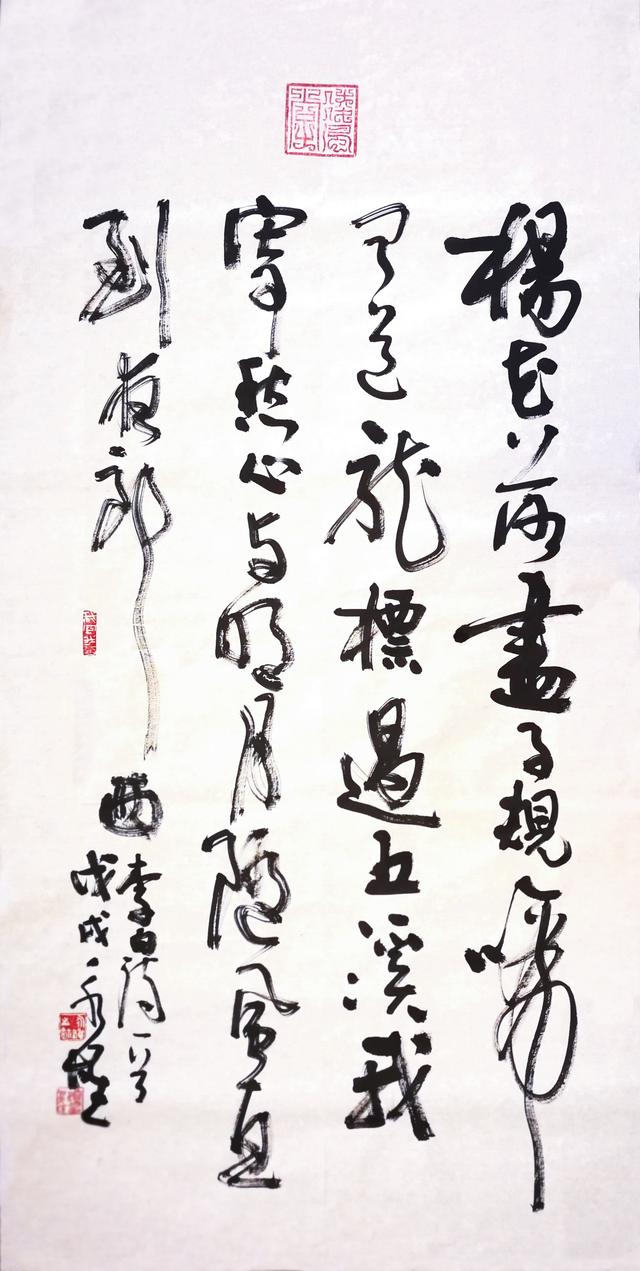 楊花落盡子規啼
聞道龍標過五溪我
寄愁心与明月随風直
到夜郎西
李白詩一首
戊戌